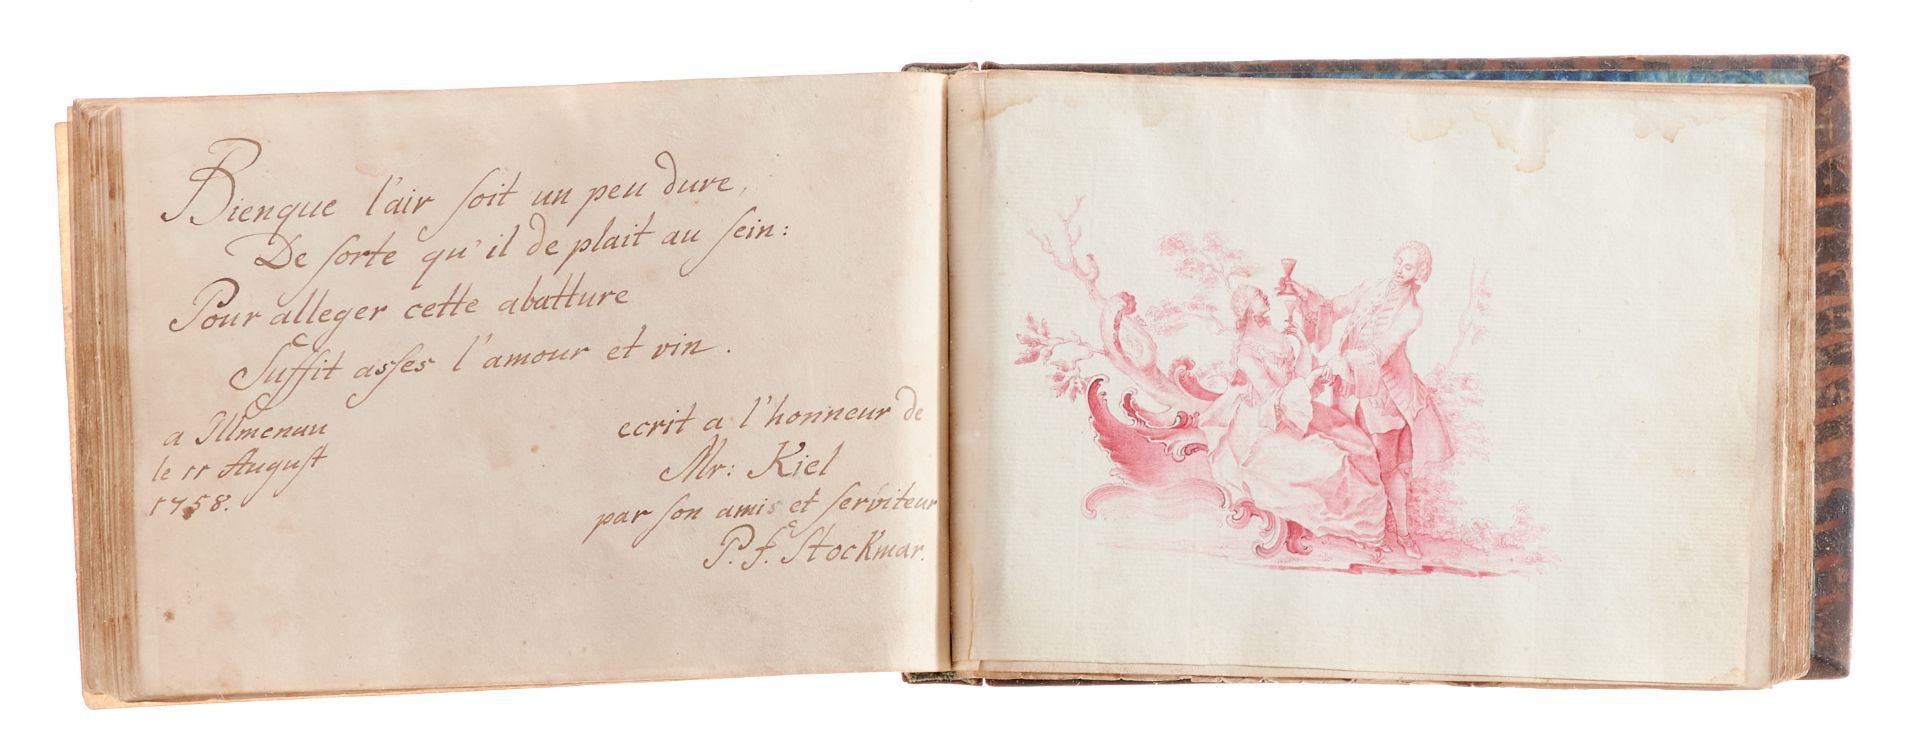 Bienque l'air soit un peu dure,
De sorte qu'il de plait au sein:
Pour alleger cette abatture
Suffit asses l'amour et vin.
a Illmenau
le 11 August
1758.
ecrit a l'honneur de
Mr: Kiel
par son amis et serviteur
P. f. Stockmar.